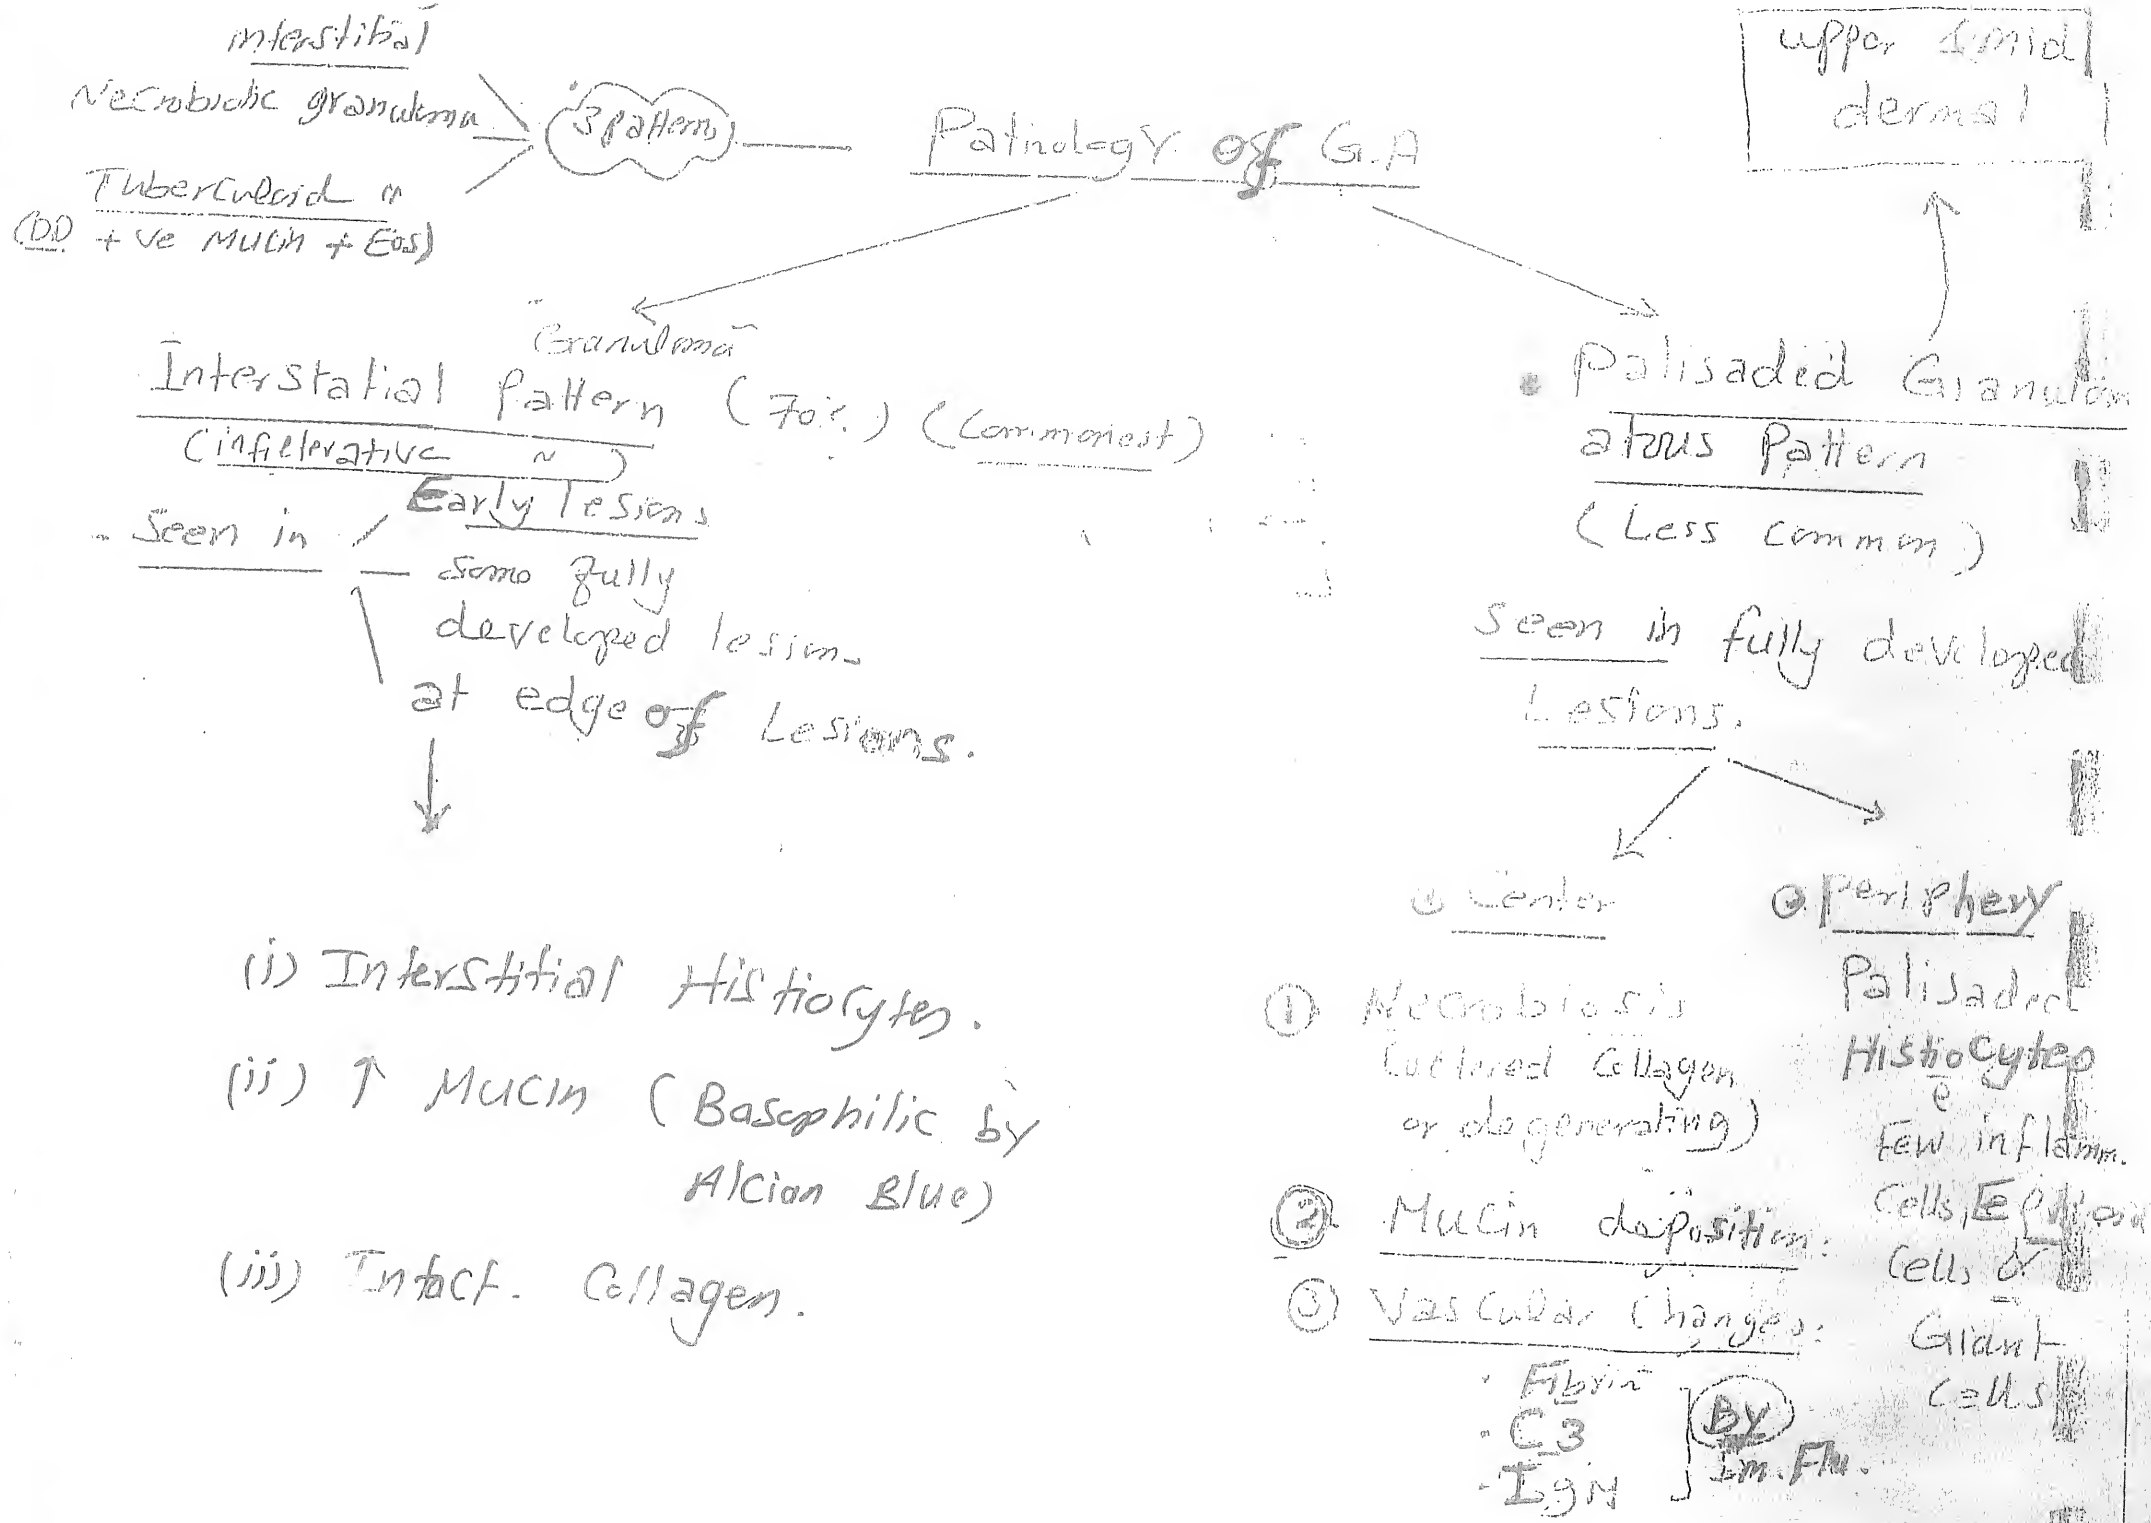 Interstitial
Necrobiotic granuloma
Tuberculoid "
(DD +ve Mucin + Eos)
3 patterns
Pathology of G.A
upper & mid
dermal
Granuloma
Interstatial Pattern (70%) (Commonest)
(infielerative ~)
Seen in
Early lesions
some fully
developed lesion.
at edge of Lesions.
(i) Interstitial Histiocytes.
(ii) ↑ Mucin (Basophilic by
Alcian Blue)
(iii) Intact Collagen.
• Palisaded Granulom
atous Pattern
(Less common)
Seen in fully developed
Lesions.
① Center
① Necrobiosis
Collagen
or degenerating)
② Mucin deposition:
③ Vascular Changes:
• Fibrin
• C3
• IgM
By
Im. Flu.
② Periphery
Palisaded
Histiocytes
e
Few inflamm.
Cells,
Cells &
Giant
Cells